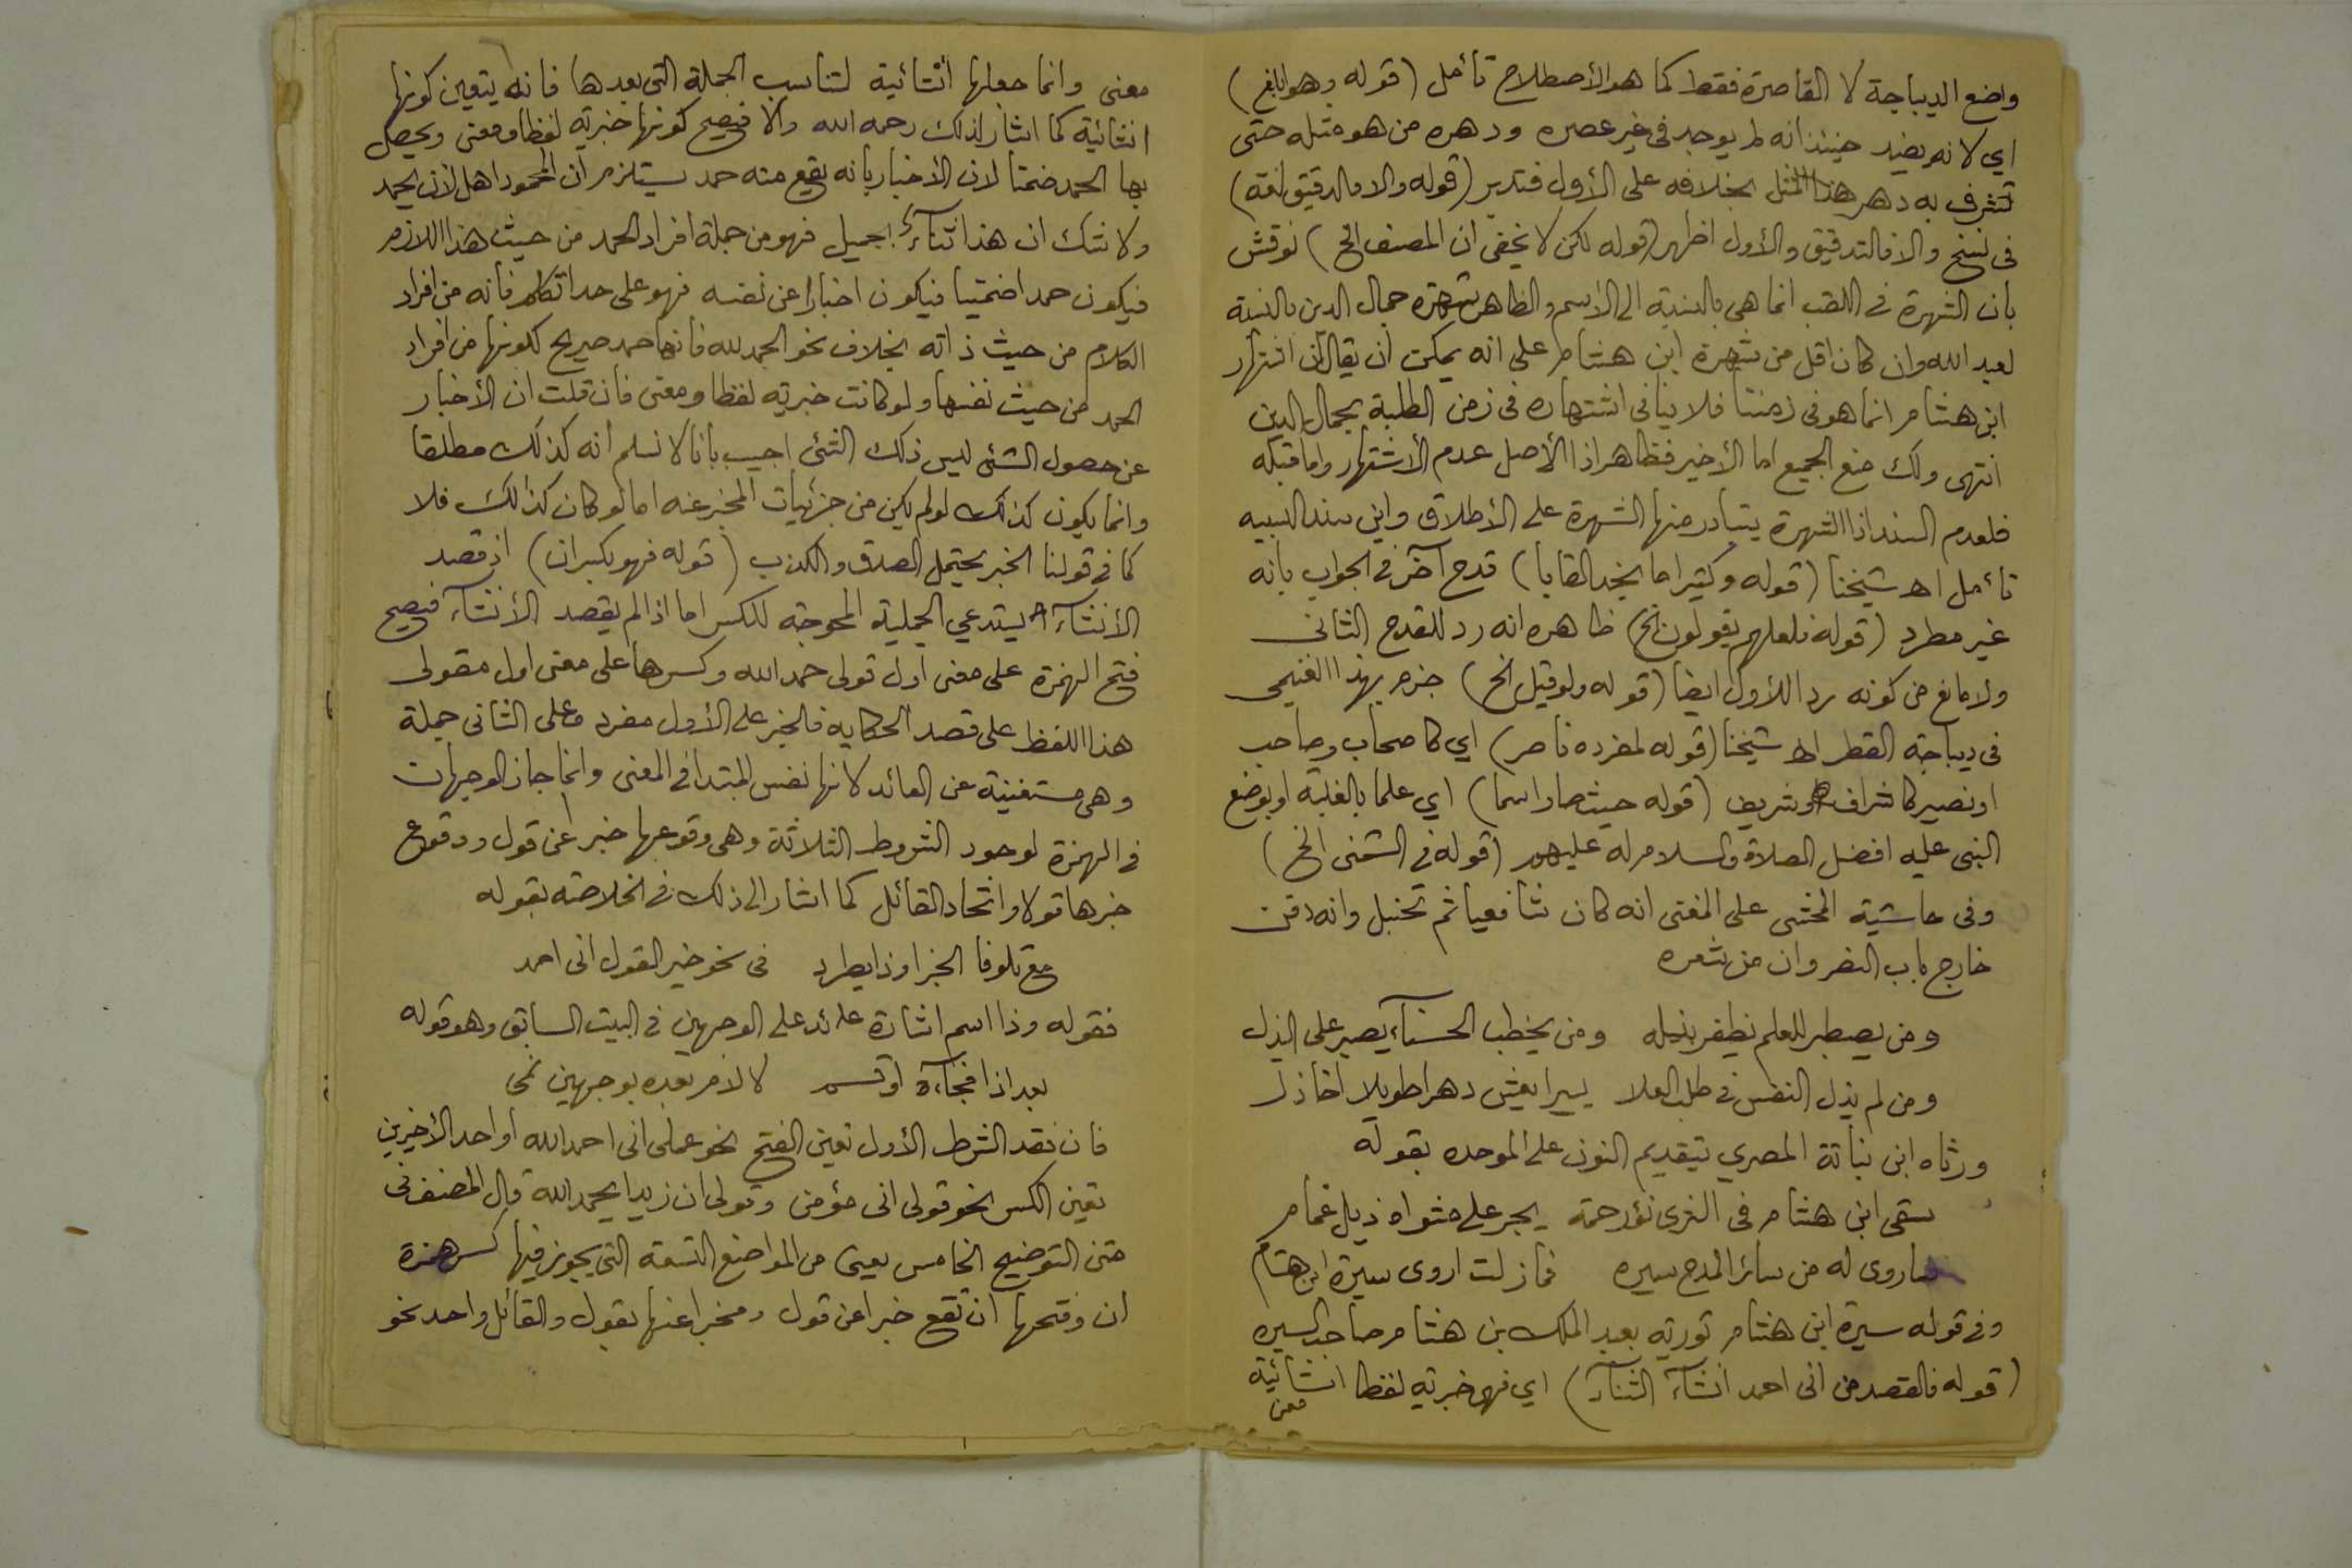 واضع الديباجة لا القاصرة فقط كما هو الأصطلاح تأمل (قوله وهو ابلغ)
اي لانه يفيد حينئذ انه لم يوجد في غير عصره ودهره من هو مثله حتى
تشرف به دهر هذا المثل بخلافه على الأول فتدبر (قوله والا فالدقيق لغة)
في نسخ والا فالتدقيق والأول اظهر (قوله لكن لا يخفى ان المصنف الخ) نوقش
بان الشهرة في اللقب انما هي بالنسبة الى الاسم والظاهر شهرة جمال الدين بالنسبة
لعبد الله وان كان اقل من شهرة ابن هشام على انه يمكن ان يقال ان اشتهار
ابن هشام انما هو في زمننا فلا ينافى اشتهاره في زمن الطلبة بجمال الدين
انتهى ولك منع الجميع اما الأخير فظاهر اذ الأصل عدم الأشتهار واما قبله
فلعدم السند اذ الشهرة يتبادر منها الشهرة على الأطلاق واين سند النسبه
تأمل اهـ شيخنا (قوله وكثيرا ما يخد القابا) قدح آخر في الجواب بانه
غير مطرد (قوله فلعلهم يقولون الخ) ظاهره انه رد للقدح الثانى
ولا مانع من كونه رد اللأول ايضا (قوله ولو قيل الخ) جزم بهذا الغنيمى
في ديباجة القطر اهـ شيخنا (قوله لمفرده ناصر) اي كاصحاب وصاحب
او نصير كاشراف وشريف (قوله حيث صار اسما) اي علما بالغلبة او بوضع
النبى عليه افضل الصلاة والسلام له عليهم (قوله في الشمنى الخ)
وفى حاشية المحشى على المغنى انه كان شافعيا ثم تحنبل وانه دفن
خارج باب النصر وان من شعره
ومن يصطبر للعلم يظفر بنيله ومن يخطب الحسناء يصبر على البذل
ومن لم يذل النفس في طلب العلا يسيرا يعش دهرا طويلا اخا ذل
ورثاه ابن نباتة المصري بتقديم النون على الموحده بقوله
سقى ابن هشام فى الثرى نؤ رحمة يجر على مثواه ذيل غمام
ساروى له من سائر المدح سيره فما زلت اروى سيرة ابن هشام
وفى قوله سيرة ابن هشام تورية بعبد الملك بن هشام صاحب السيره
(قوله فالقصد من انى احمد انشاء الثناء) اي فهى خبرية لفظا انشائية
معنى
معنى وانما جعلها انشائية لتناسب الجملة التى بعدها فانه يتعين كونها
انشائية كما اشار لذلك رحمه الله والا فيصح كونها خبرية لفظا ومعنى ويحصل
بها الحمد ضمنا لان الأخبار بانه يقع منه حمد يستلزم ان المحمود اهل لأن يحمد
ولا شك ان هذا ثناء بجميل فهو من جملة افراد الحمد من حيث هذا اللازم
فيكون حمدا ضمنيا فيكون اخبارا عن نفسه فهو على حد اتكلم فانه من افراد
الكلام من حيث ذاته بخلاف نحو الحمد لله فانها حمد صريح لكونها من افراد
الحمد من حيث نفسها ولو كانت خبرية لفظا ومعنى فان قلت ان الأخبار
عن حصول الشئ ليس ذلك الشئ اجيب بانا لا نسلم انه كذلك مطلقا
وانما يكون كذلك لو لم يكن من جزئيات المخبر عنه اما لو كان كذالك فلا
كما في قولنا الخبر يحتمل الصدق والكذب (قوله فهو بكسر ان) اذ قصد
الأنشاء يستدعي الجملية المحوجة للكسر اما اذا لم يقصد الأنشاء فيصح
فتح الهمزة على معنى اول قولى حمد الله وكسرها على معنى اول مقولى
هذا اللفظ على قصد الحكايه فالخبر على الأول مفرد وعلى الثانى جملة
وهى مستغنية عن العائد لانها نفس المبتدا في المعنى وانما جاز الوجهان
في الهمزة لوجود الشروط الثلاثة وهى وقوعها خبرا عن قول ووقوع
خبرها قولا واتحاد القائل كما اشار الى ذلك في الخلاصة بقوله
مع تلو فا الجزا وذا يطرد فى نحو خير القول انى احمد
فقوله وذا اسم اشارة عائد على الوجهين في البيت السابق وهو قوله
بعد اذا فجاءة او قسم لا لام بعده بوجهين نمى
فان فقد الشرط الأول تعين الفتح نحو عملى انى احمد الله او احد الأخيرين
تعين الكسر نحو قولى انى مؤمن وقولى ان زيدا يحمد الله قال المصنف فى
متن التوضيح الخامس يعنى من المواضع التسعه التى يجوز فيها كسر همزة
ان وفتحها ان تقع خبرا عن قول ومخبرا عنها بقول والقائل واحد نحو